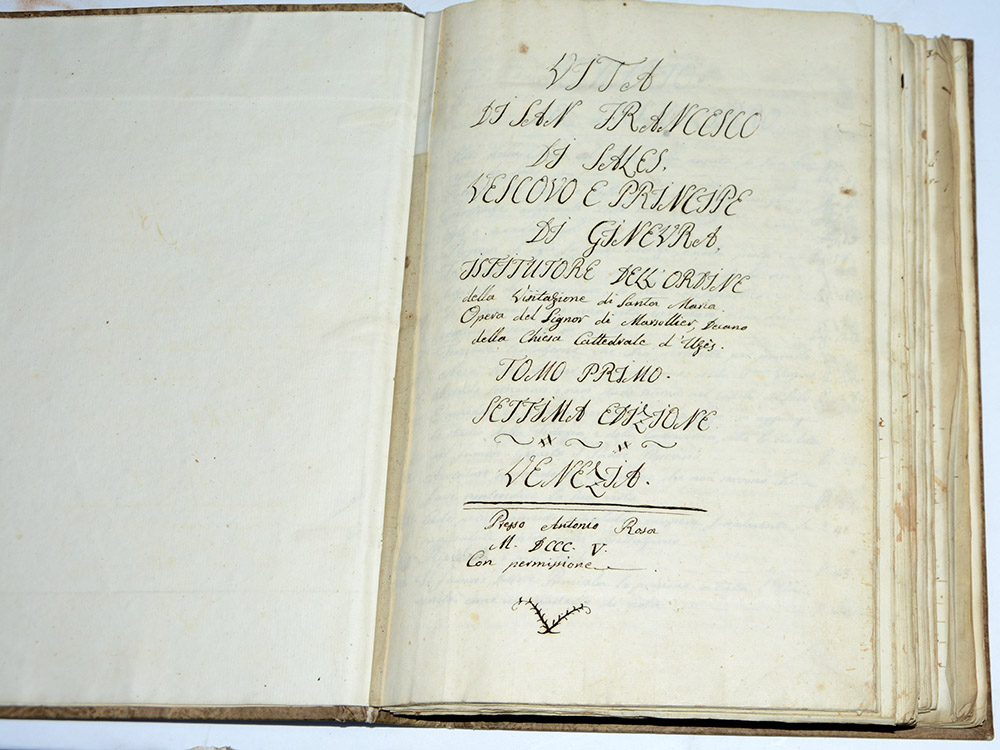 VITA
DI SAN FRANCESCO
DI SALES.
VESCOVO E PRINCIPE
DI GINEVRA,
ISTITUTORE DELL'ORDINE
della Visitazione di Santa Maria.
Opera del Signor di Marsollier, Decano
della Chiesa Cattedrale d'Uzès.
TOMO PRIMO.
SETTIMA EDIZIONE
VENEZIA.
Presso Antonio Rosa
M. DCCC. V.
Con permissione